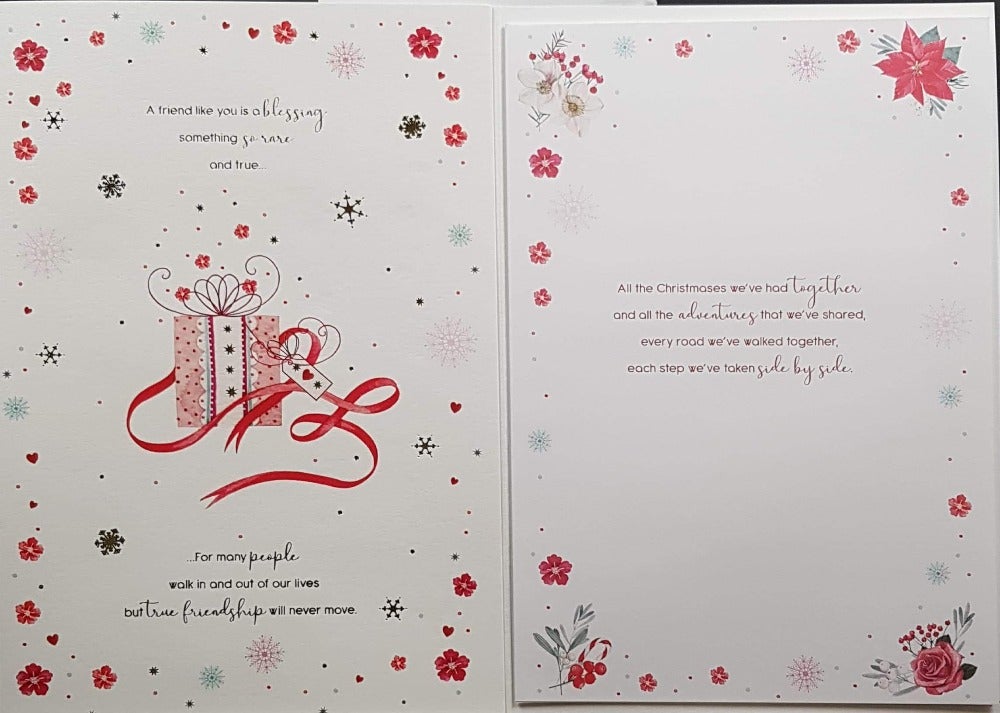 A friend like you is a blessing
something so rare
and true...
...For many people
walk in and out of our lives
but true friendship will never move.
All the Christmases we've had together
and all the adventures that we've shared,
every road we've walked together,
each step we've taken side by side.